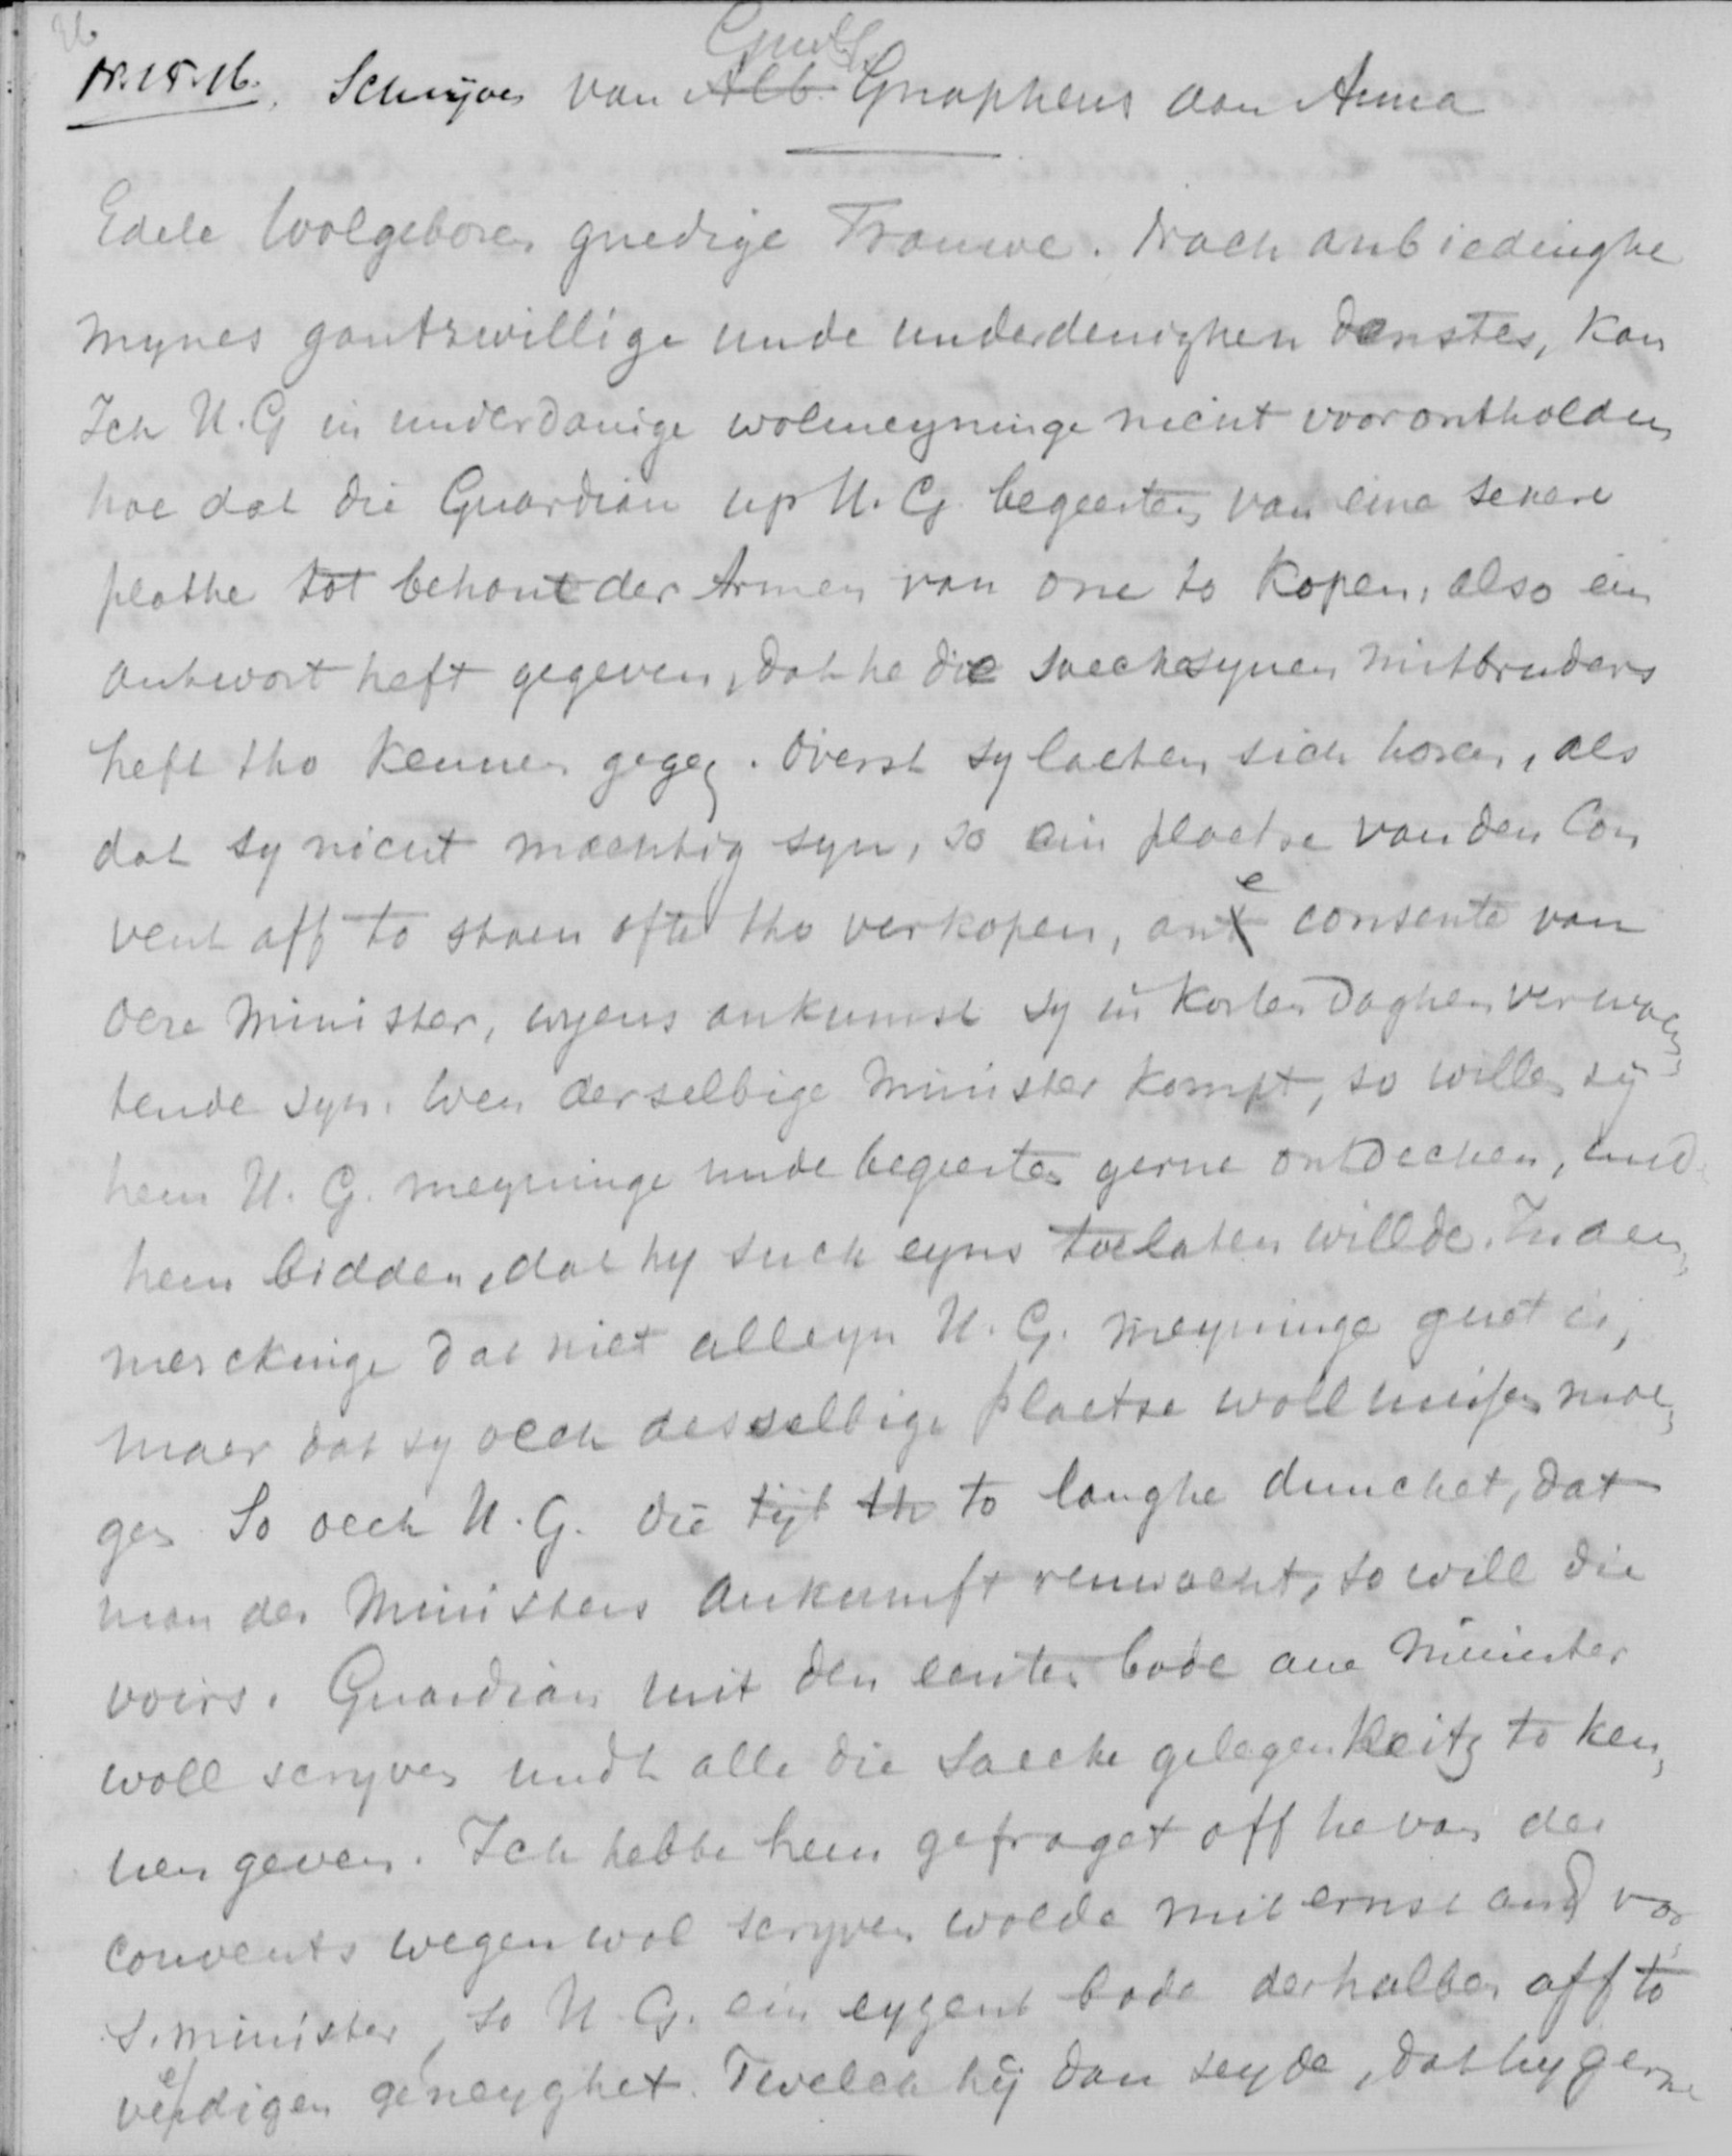 26
N. 15.16. Schrijven van Alb. Gnapheus aan Anna
Guilh.
Edele Wolgeboren gnedige Frouwe. Nach anbiedinghe
mynes gantzwillige unde underdenighen denstes, kan
Ich U.G in underdanige wolmeyninge nicht voorontholden
hoe dat die Guardian up U.G. begeerten van eine sekere
plathe tot behouf der Armen van one to kopen, also ein
antwort heft gegeven, dat he die saecke synen mitbruders
heft tho kennen gegeg. Overst sy laeten sich horen, als
dat sy nicht machtig syn, so ein plaetse van den Con
vent aff to staen ofte tho verkopen, ane consente van
oere Minister, wyens ankumst sy in korten Daghen verwach,
tende syn. Wen derselbige Minister kompt, so willen sy
hem U.G. meyninge unde begeerten gerne ontdecken, unde
hem bidden, dat hy such eyns toelaten willde. In aen,
merckinge dat niet alleyn U.G. meyninge guet is,
maer dat sy oeck desselbige plaetse woll missen moe,
gen So oeck U.G. die tyt th to langhe duncket, dat
man des Ministers Ankumft verwacht, so will die
voirs. Guardian mit den eersten bode ane Minister
woll scryven undt alle die saecke gelegenheitz to ken,
nen geven. Ich hebbe hem gefraget off he van des
convents wegen wol scryven wolde mit ernst and vor,
s. minister, so U.G. ein eygent bode derhalben aff to
verdigen geneyghet. Twelck hij dan seyde, dat hy gerne